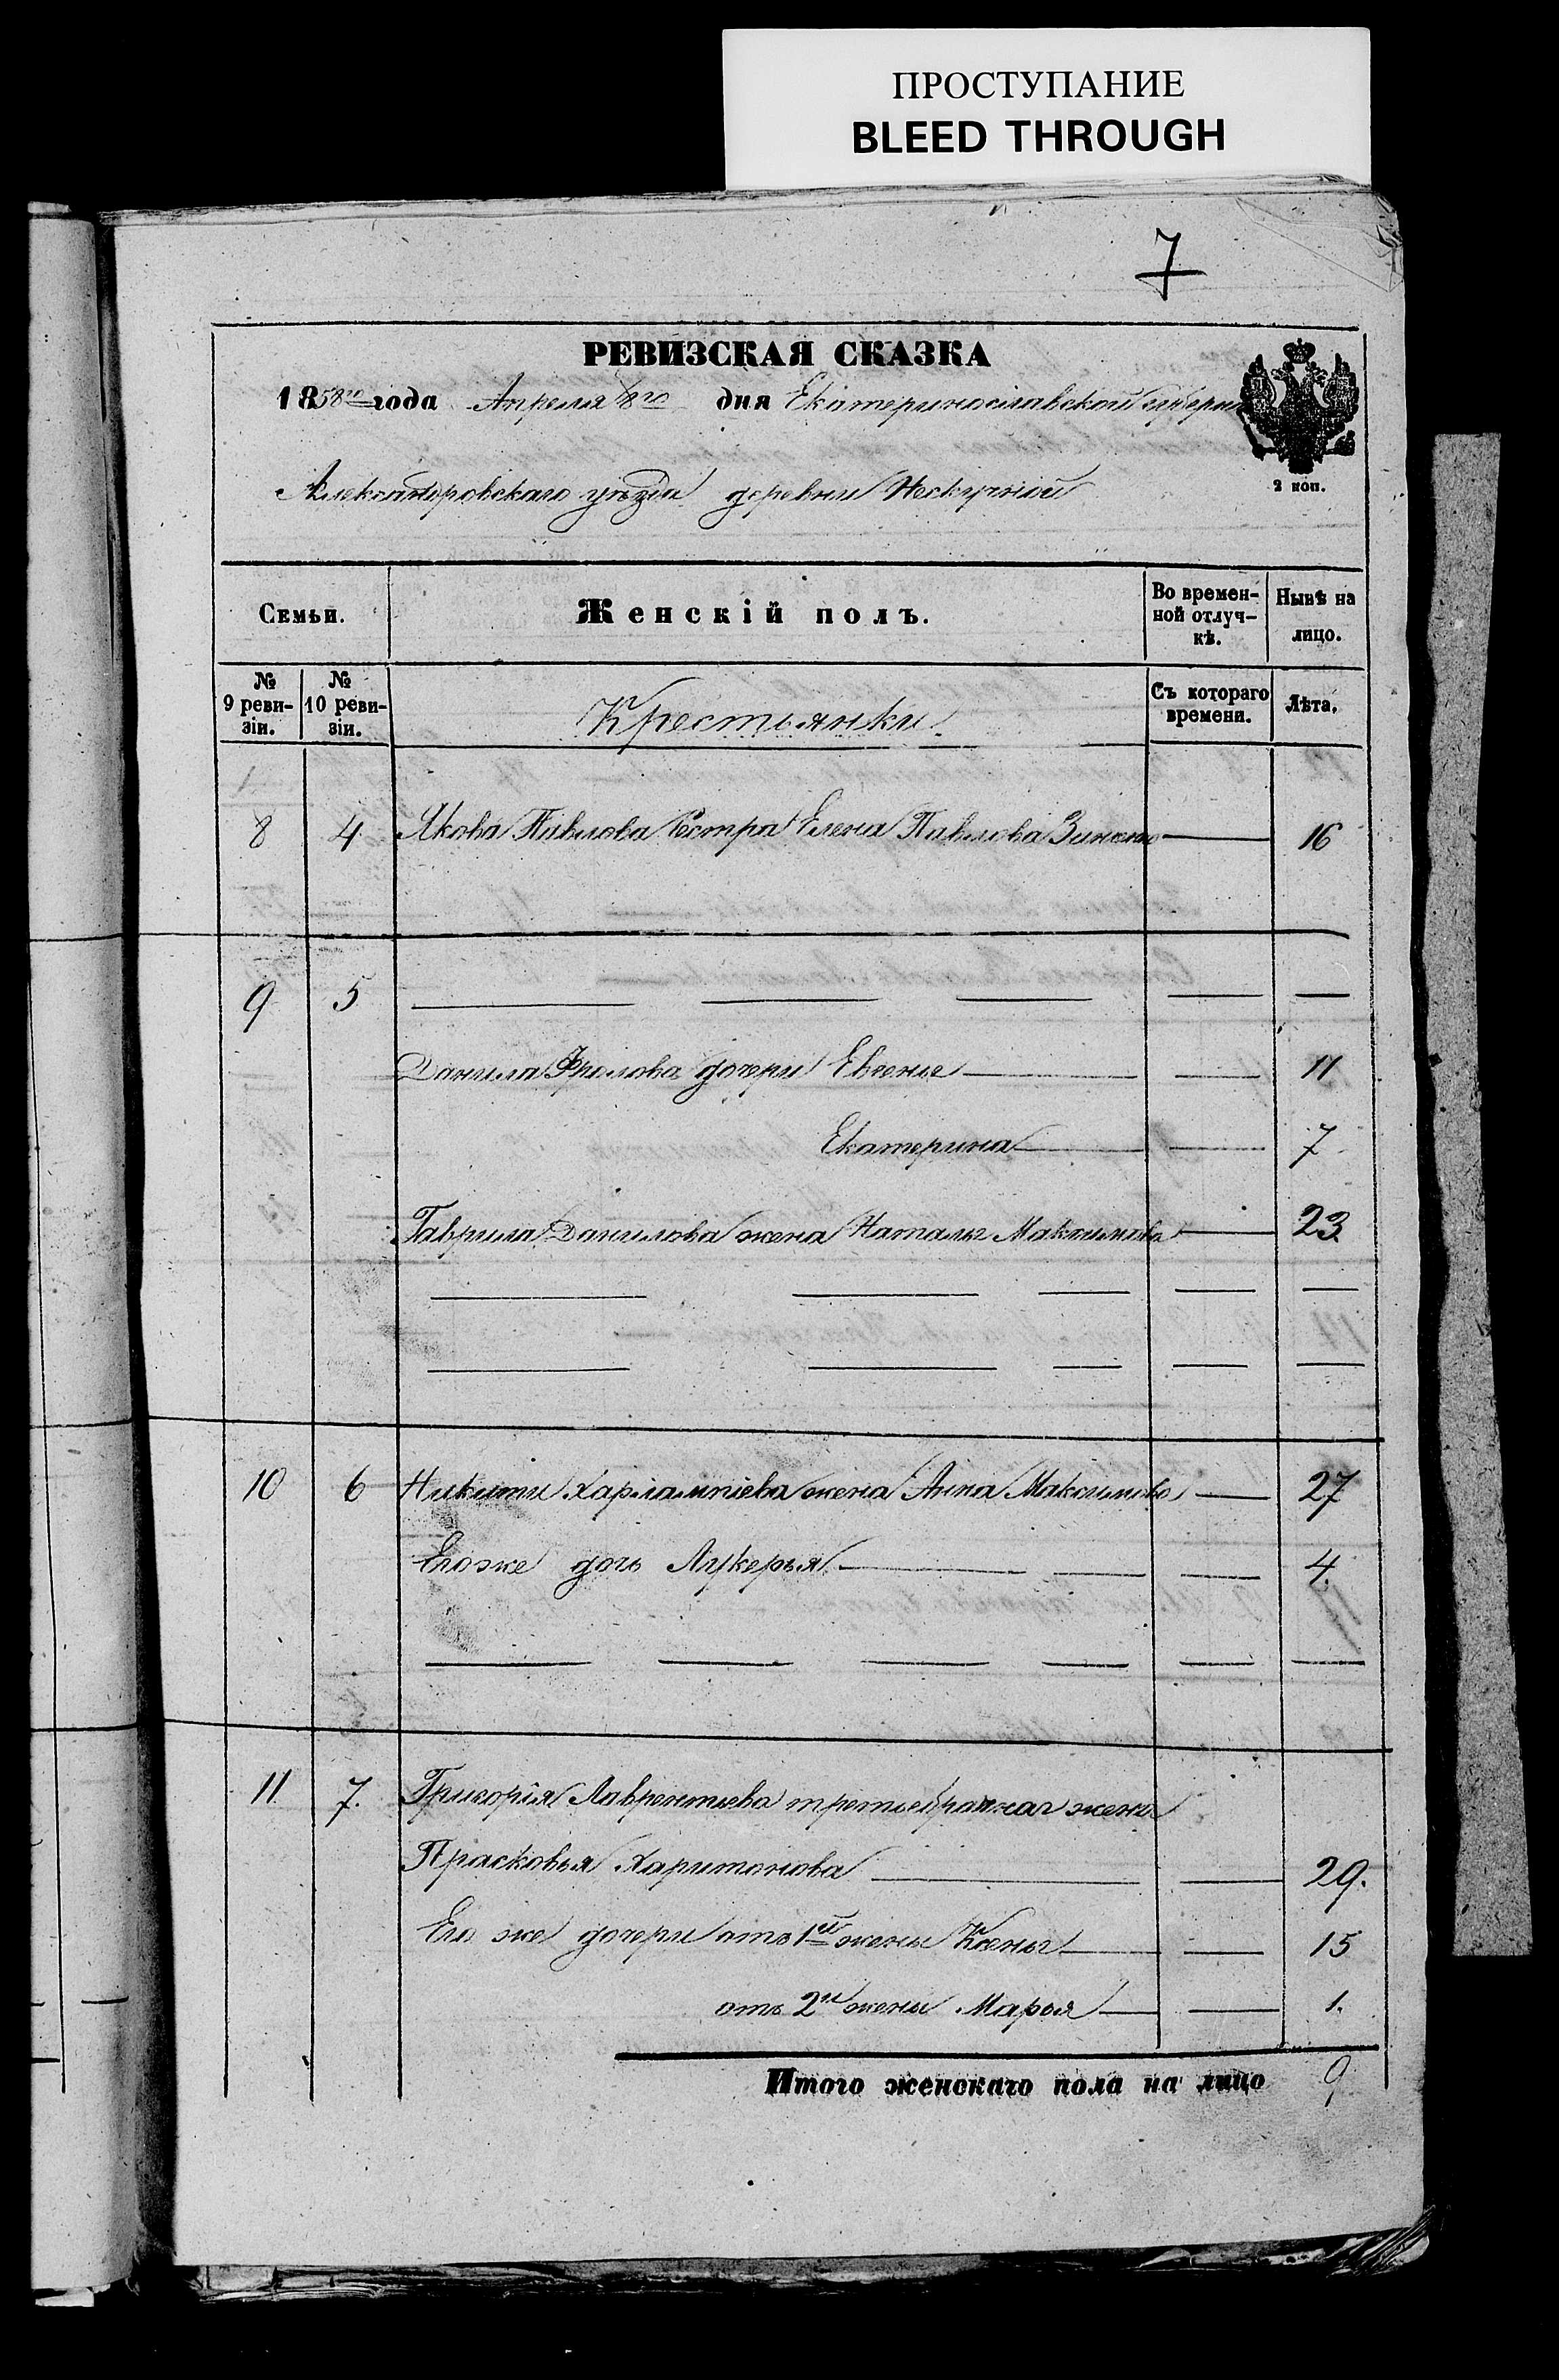 ПРОСТУПАНИЕ
BLEED THROUGH
7
РЕВИЗСКАЯ СКАЗКА
1858го года Апреля 8го дня Екатеринославской губерніи
2 коп.
Александровскаго уѣзда деревни Нескучной
Семьи. Женскій полъ. Во временной отлучкѣ. Нынѣ на лицо.
№ 9 ревизіи. № 10 ревизіи. Крестьянки Съ котораго времени. Лѣта.
8 4 Якова Павлова Сестра Елена Павлова Зинене 16
9 5
Данила Фролова дочери Евгенье 11
Екатерина 7
Гаврила Данилова жена Наталья Максимова 23
10 6 Никиты Харлампіева жена Анна Максимова 27
Его же дочь Лукерья 4.
11 7. Григорія Лаврентьева третьебрачная жена
Прасковья Харитонова 29.
Его же дочери отъ 1ей жены Ксенья 15
отъ 2й жены Марья 1.
Итого женскаго пола на лицо 9